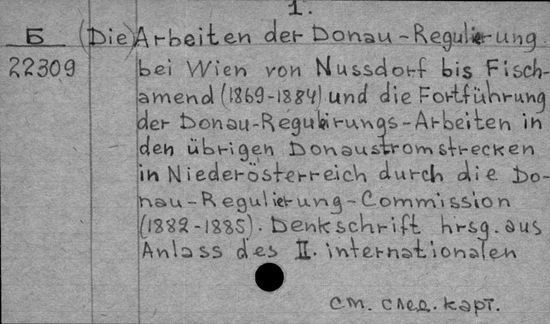 1.
Б (Die) Arbeiten der Donau-Regulierung
22309 bei Wien von Nussdorf bis Fisch-
amend (1869-1884) und die Fortführung
der Donau-Regulirungs-Arbeiten in
den übrigen Donaustromstrecken
in Niederösterreich durch die Do-
nau-Regulierung-Commission
(1882-1885). Denkschrift hrsg. aus
Anlass des II. internationalen
см. след. карт.